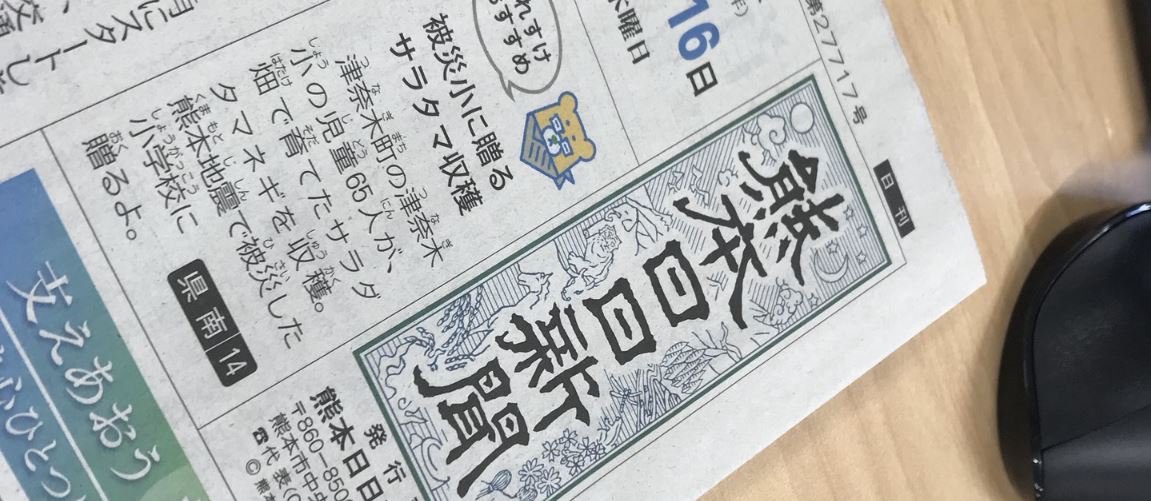 第27717号
日刊
熊本日日新聞
16日
木曜日
れすけ
おすすめ
被災小に贈る
サラタマ収穫
津奈木町の津奈木
小の児童65人が、
畑で育てたサラダ
タマネギを収穫。
熊本地震で被災した
小学校に
贈るよ。
県南14
発行
熊本日日
〒860-850
熊本市中央
☎代表(0
©熊本
支えあおう
ひとつ
にスタ
ートし